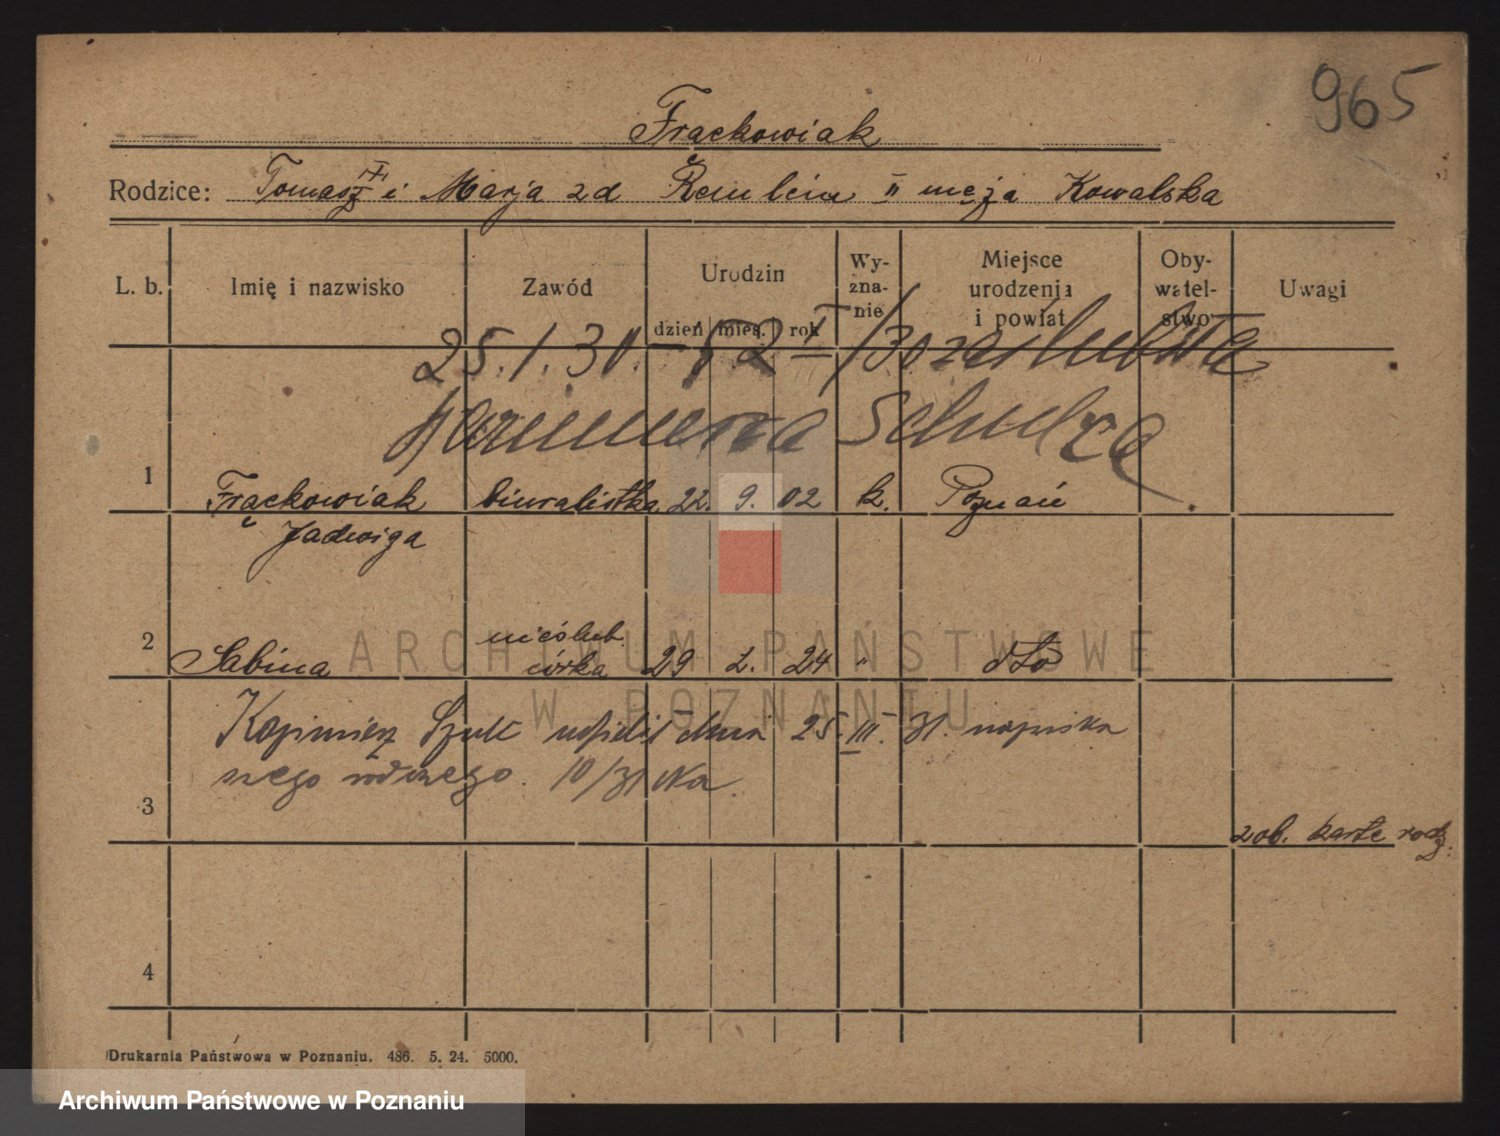 965
Frąckowiak
Rodzice: Tomasz i Marja zd II męża Kowalska
L. b. Imię i nazwisko Zawód Urodzin dzień mies. rok Wy-zna-nie Miejsce urodzenia i powiat Oby-watel-stwo Uwagi
25.1.30.
1 Frąckowiak biuralistka 22. 9. 02 k. Poznań
Jadwiga
nieślub.
2 Sabina córka 29 2. 24 " dto
Kazimierz Szulc udzielił dnia 25. III. 31. nazwiska
swego rodowego. 10/31 Na.
3 zob. kartę rodz.
4
Drukarnia Państwowa w Poznaniu. 486. 5. 24. 5000.
ARCHIWUM PAŃSTWOWE
W POZNANIU
Archiwum Państwowe w Poznaniu